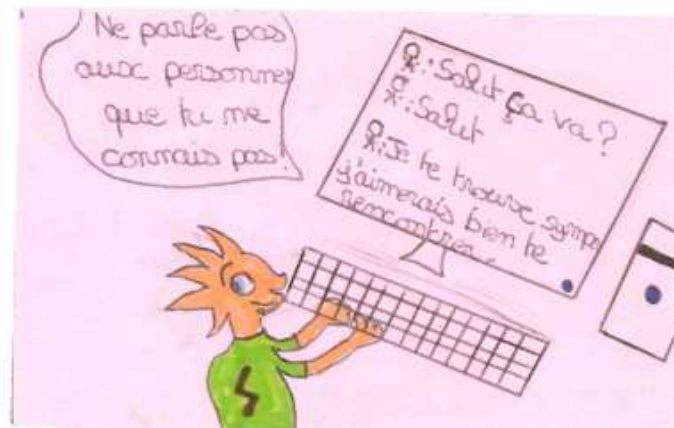 Ne parle pas
aux personnes
que tu ne
connais pas!
: Salut ça va?
: Salut
: Je te trouve sympa
j'aimerais bien te
rencontrer.